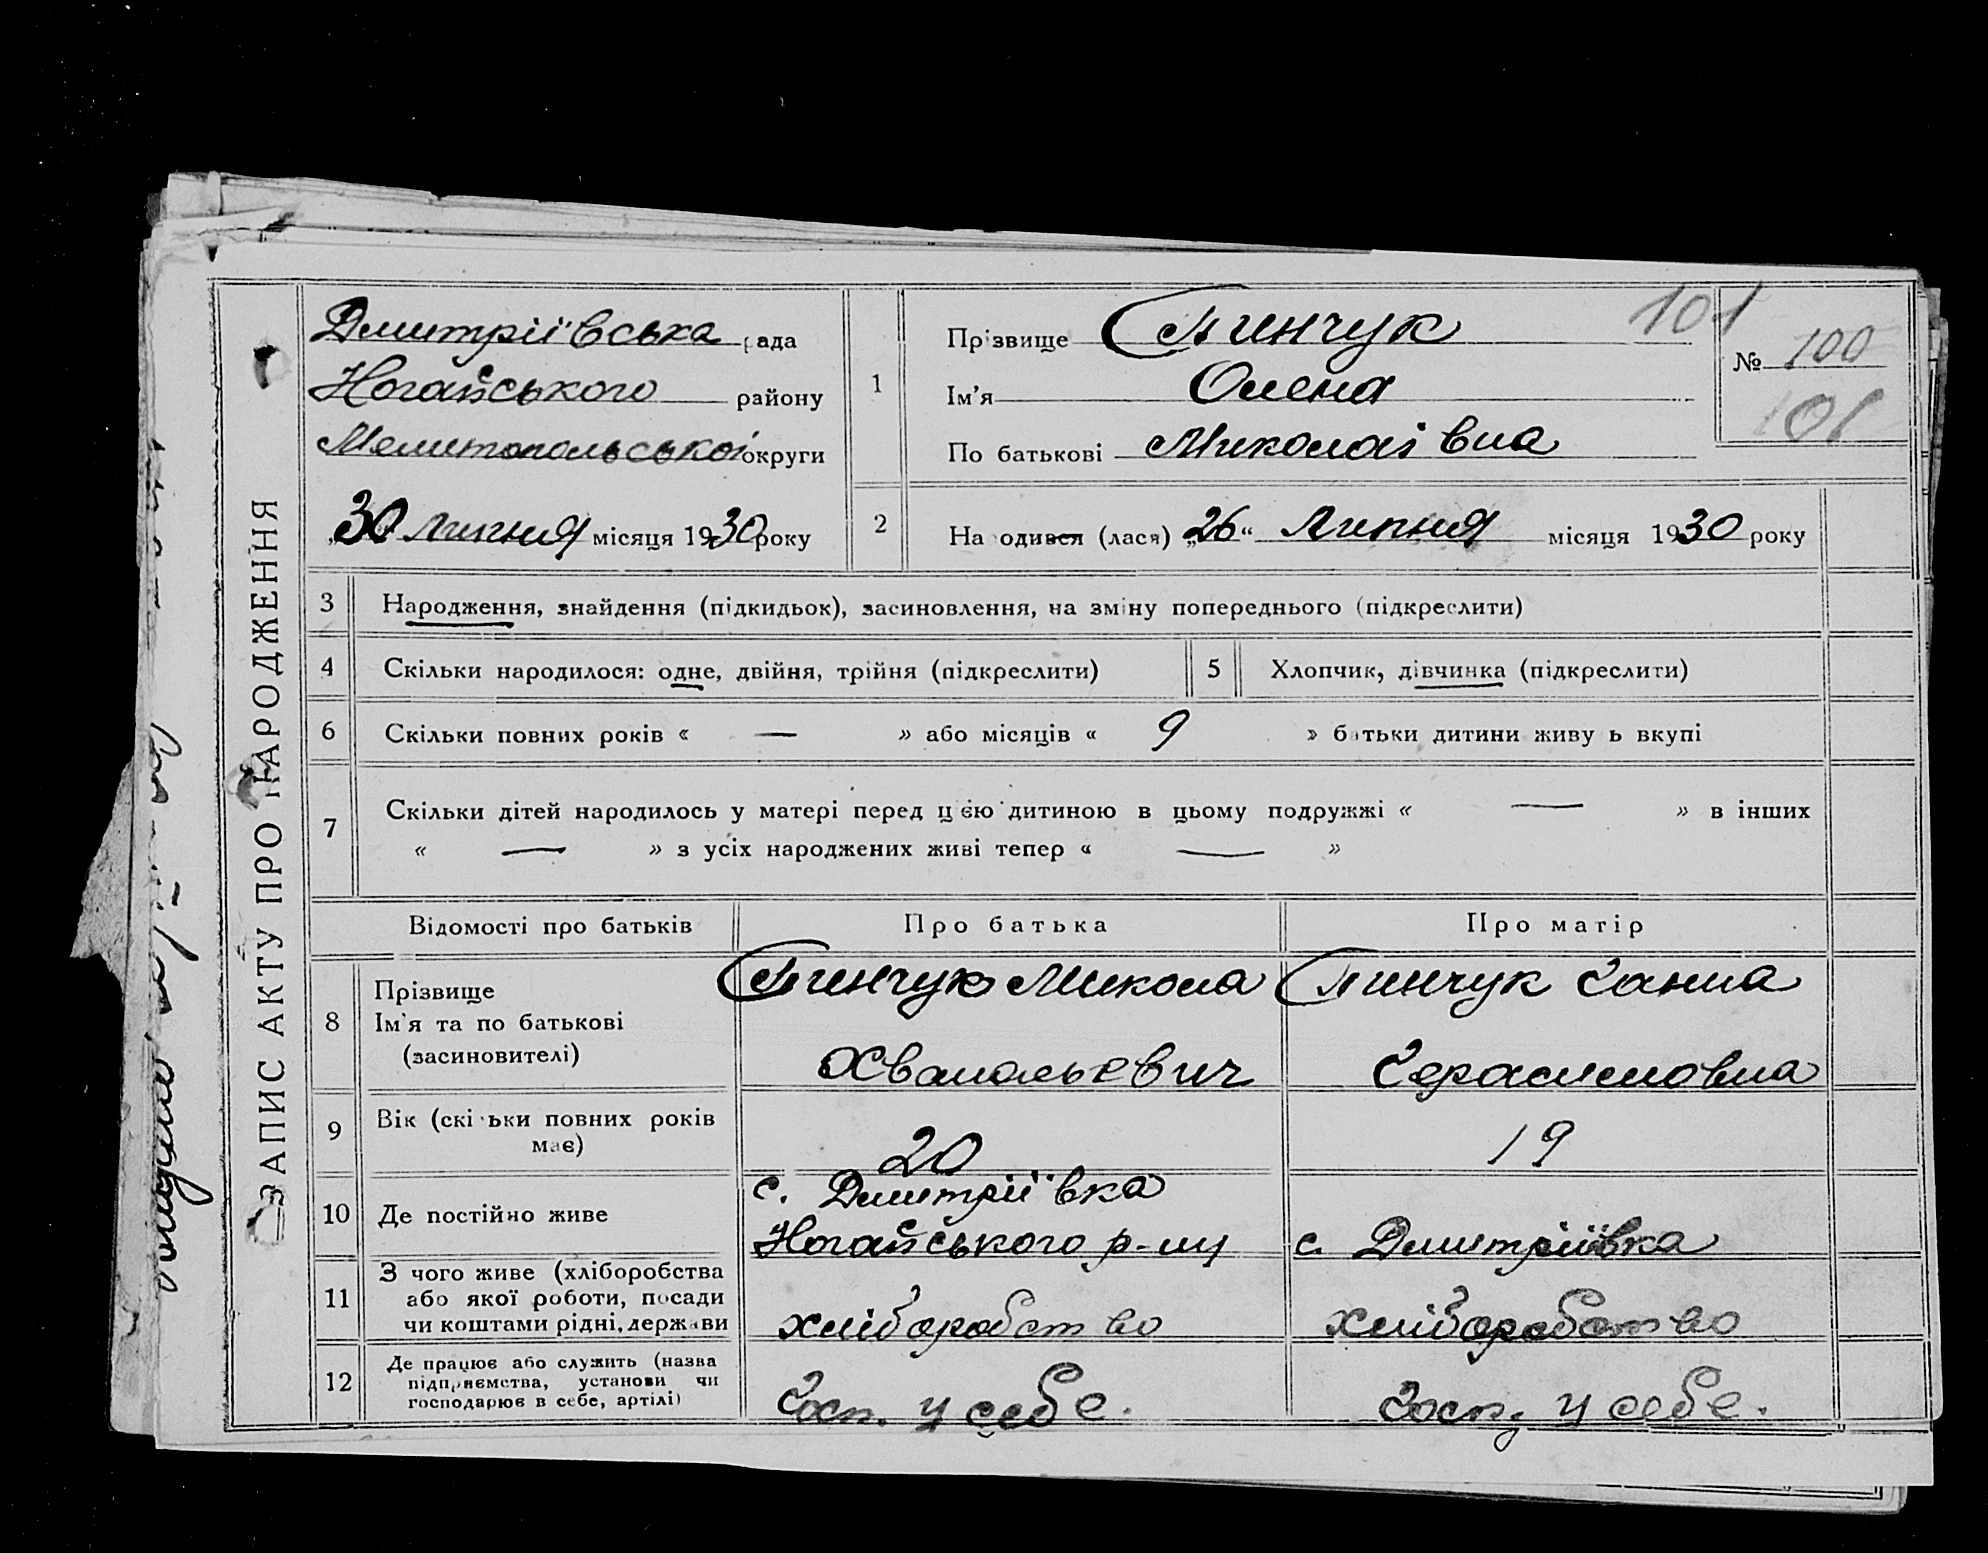 ЗАПИС АКТУ ПРО НАРОДЖЕННЯ
Дмитріївська рада
Ногайського району
Мелитопольської округи
„30 Липня місяця 1930 року
1
Прізвище Пинчук
Ім'я Олена
По батькові Миколаївна
101
№ 100
101
2
Народився (лася) „26“ Липня місяця 1930 року
3 Народження, знайдення (підкидьок), засиновлення, на зміну попереднього (підкреслити)
4 Скільки народилося: одне, двійня, трійня (підкреслити)
5 Хлопчик, дівчинка (підкреслити)
6 Скільки повних років « — » або місяців « 9 » батьки дитини живуть вкупі
7 Скільки дітей народилось у матері перед цією дитиною в цьому подружжі « — » в інших
« — » з усіх народжених живі тепер « — »
Відомості про батьків Про батька Про матір
8 Прізвище
Ім'я та по батькові
(засиновителі)
Пинчук Микола
Пинчук Ганна
Герасимовна
9 Вік (скільки повних років
має)
20
19
10 Де постійно живе
с. Дмитріївка
Ногайського р-ну
с. Дмитріївка
11 З чого живе (хліборобства
або якої роботи, посади
чи коштами рідні, держави
хліборобство
хліборобство
12 Де працює або служить (назва
підприємства, установи чи
господарює в себе, артілі)
Госп. у себе.
Госп. у себе.